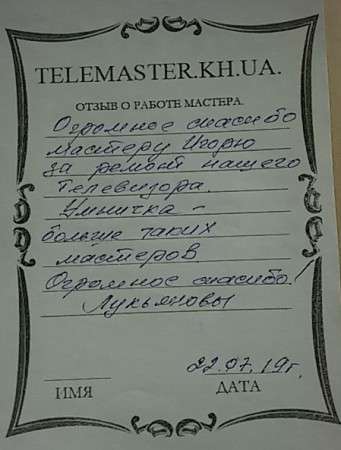 TELEMASTER.KH.UA.
ОТЗЫВ О РАБОТЕ МАСТЕРА.
Огромное спасибо
мастеру Игорю
за ремонт нашего
телевизора.
Умничка -
больше таких
мастеров
Огромное спасибо!
Лукьяновы
22.07.19г.
ИМЯ ДАТА